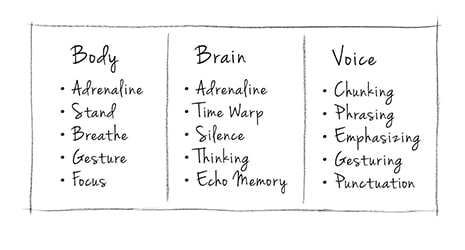 Body
• Adrenaline
• Stand
• Breathe
• Gesture
• Focus
Brain
• Adrenaline
• Time Warp
• Silence
• Thinking
• Echo Memory
Voice
• Chunking
• Phrasing
• Emphasizing
• Gesturing
• Punctuation